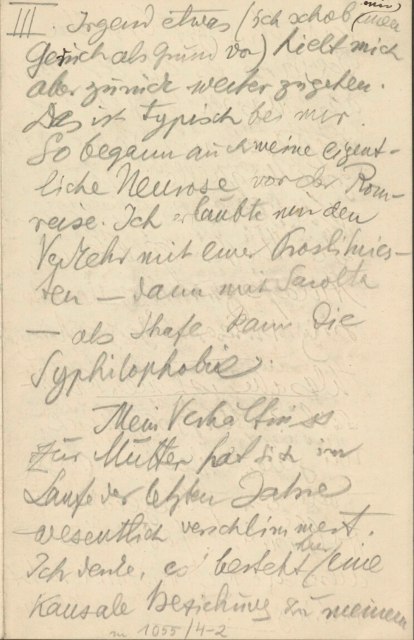 III. Irgend etwas (ich schob mir einen
Geruch als Grund vor) hielt mich
aber zurück weiter zugehen.
Das ist typisch bei mir.
So begann auch meine eigent-
liche Neurose vor der Rom-
reise. Ich erlaubte mir den
Verkehr mit einer Prostituier-
ten — dann mit Sarolta
— als Strafe kam die
Syphilophobie.
Mein Verhältniss
zur Mutter hat sich im
Laufe der letzten Jahre
wesentlich verschlimmert.
Ich denke, es besteht hier eine
kausale Beziehung zu meinem
m 1055/4-2